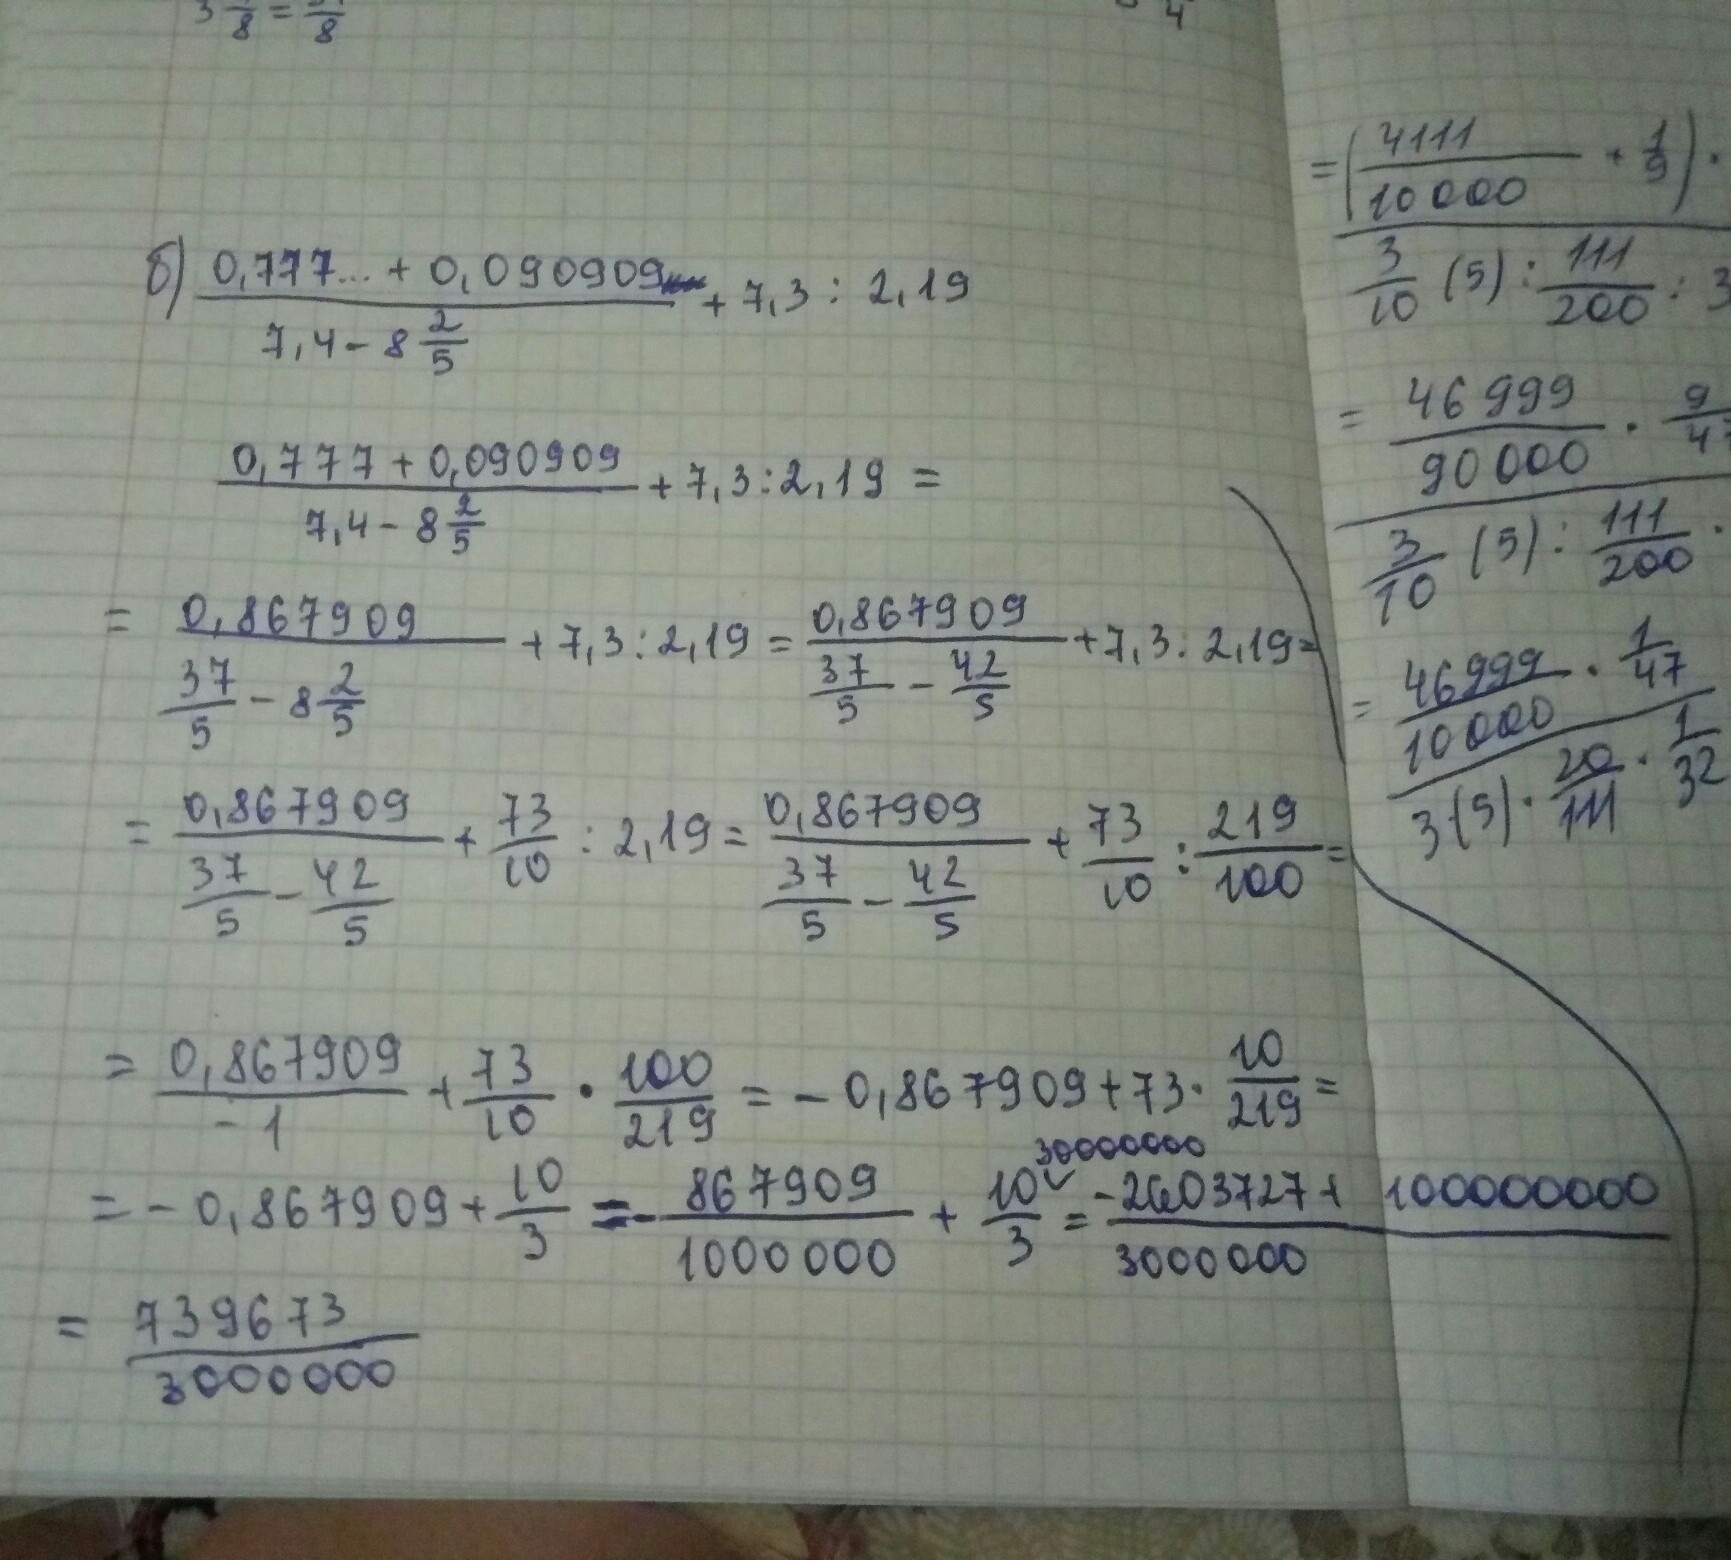 3 7/8 = 31/8
4
б) (0,777... + 0,090909)/(7,4 - 8 2/5) + 7,3 : 2,19
(0,777 + 0,090909)/(7,4 - 8 2/5) + 7,3 : 2,19 =
= 0,867909/(37/5 - 8 2/5) + 7,3 : 2,19 = 0,867909/(37/5 - 42/5) + 7,3 : 2,19 =
= 0,867909/(37/5 - 42/5) + 73/10 : 2,19 = 0,867909/(37/5 - 42/5) + 73/10 : 219/100 =
= 0,867909/-1 + 73/10 · 100/219 = - 0,867909 + 73 · 10/219 =
30000000
= - 0,867909 + 10/3 = - 867909/1000000 + 10/3 = (-2603727 + 100000000)/3000000
= 739673/3000000
= (4111/10000 + 1/9) ·
3/10 (5) : 111/200 : 3
= 46999/90000 · 9/47
3/10 (5) : 111/200 ·
= 46999/10000 · 1/47
3 · (5) · 20/111 · 1/32